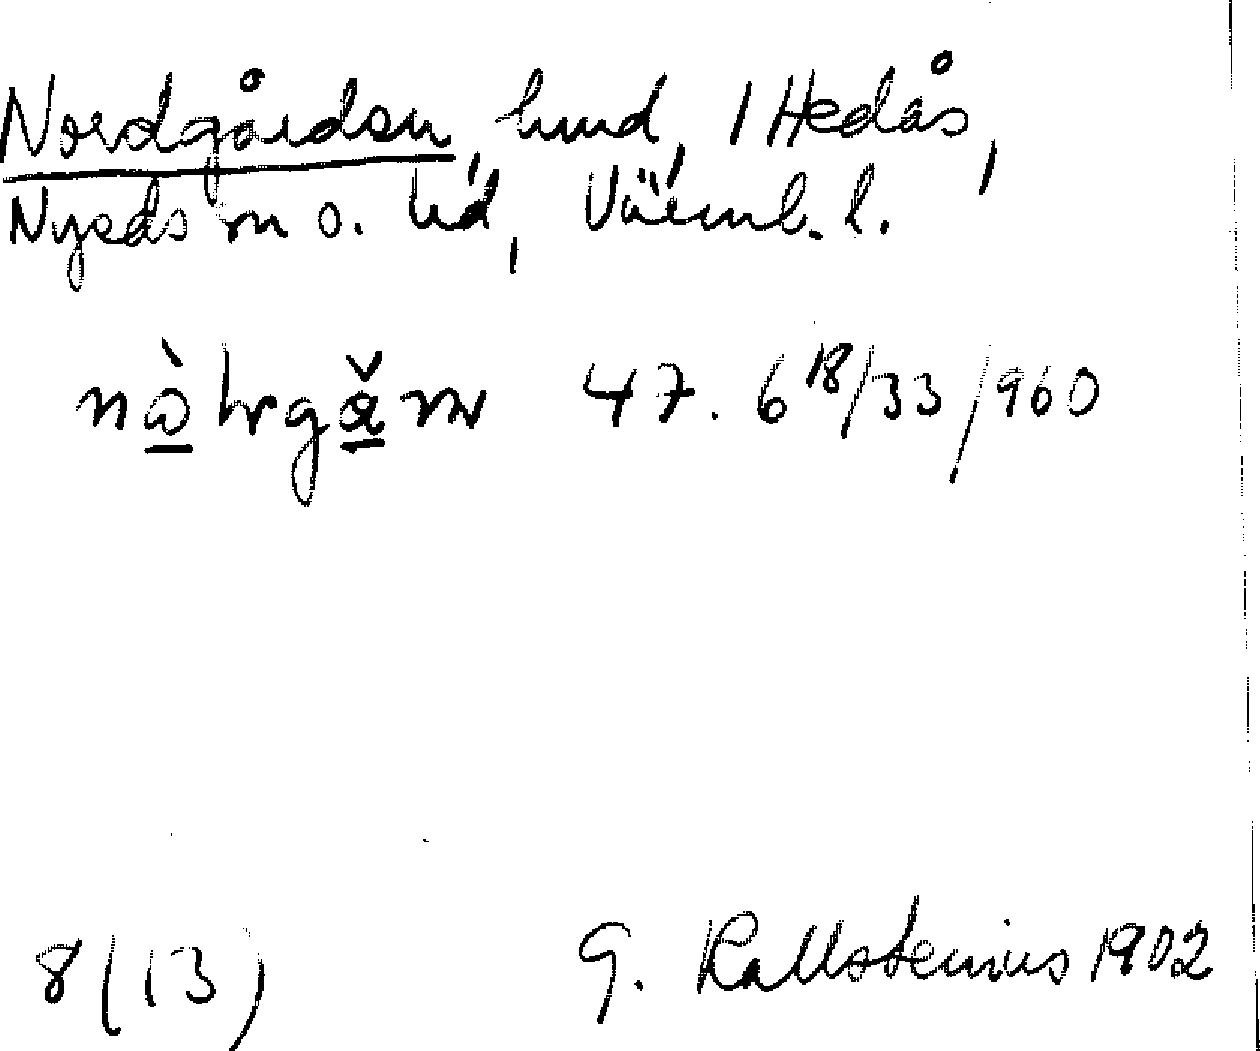 Nordgården, hmd, 1 Hedås,
Nyeds sn o. hd, Värml. l.
47. 6 18/33/960
8(13) G. Kallstenius 1902